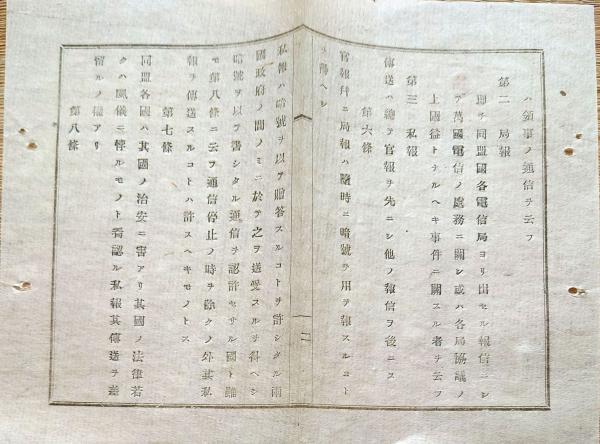 ハ領事ノ通信ヲ云フ
第二 局報
即チ同盟國各電信局ヨリ出セル報信ニシ
テ萬國電信ノ處務ニ關シ或ハ各局協議ノ
上國益トナルヘキ事件ニ關スル者ヲ云フ
第三 私報
傳送ハ總テ官報ヲ先ニシ他ノ報信ヲ後ニス
第六條
官報幷ニ局報ハ隨時ニ暗號ヲ用ヲ報スルコト
ヲ得ヘシ
私報ハ暗號ヲ以テ贈答スルコトヲ許シタル兩
國政府ノ間ノミニ於テ之ヲ送受スルヲ得ヘシ
暗號ヲ以テ書シタル通信ヲ認許セサル國ト雖
モ第八條ニ云フ通信停止ノ時ヲ除クノ外其私
報ヲ傳送スルコトハ許スヘキモノトス
第七條
同盟各國ハ其國ノ治安ニ害アリ其國ノ法律若
クハ風儀ニ悖ルモノト看認ル私報其傳送ヲ差
留ルノ權アリ
第八條
二